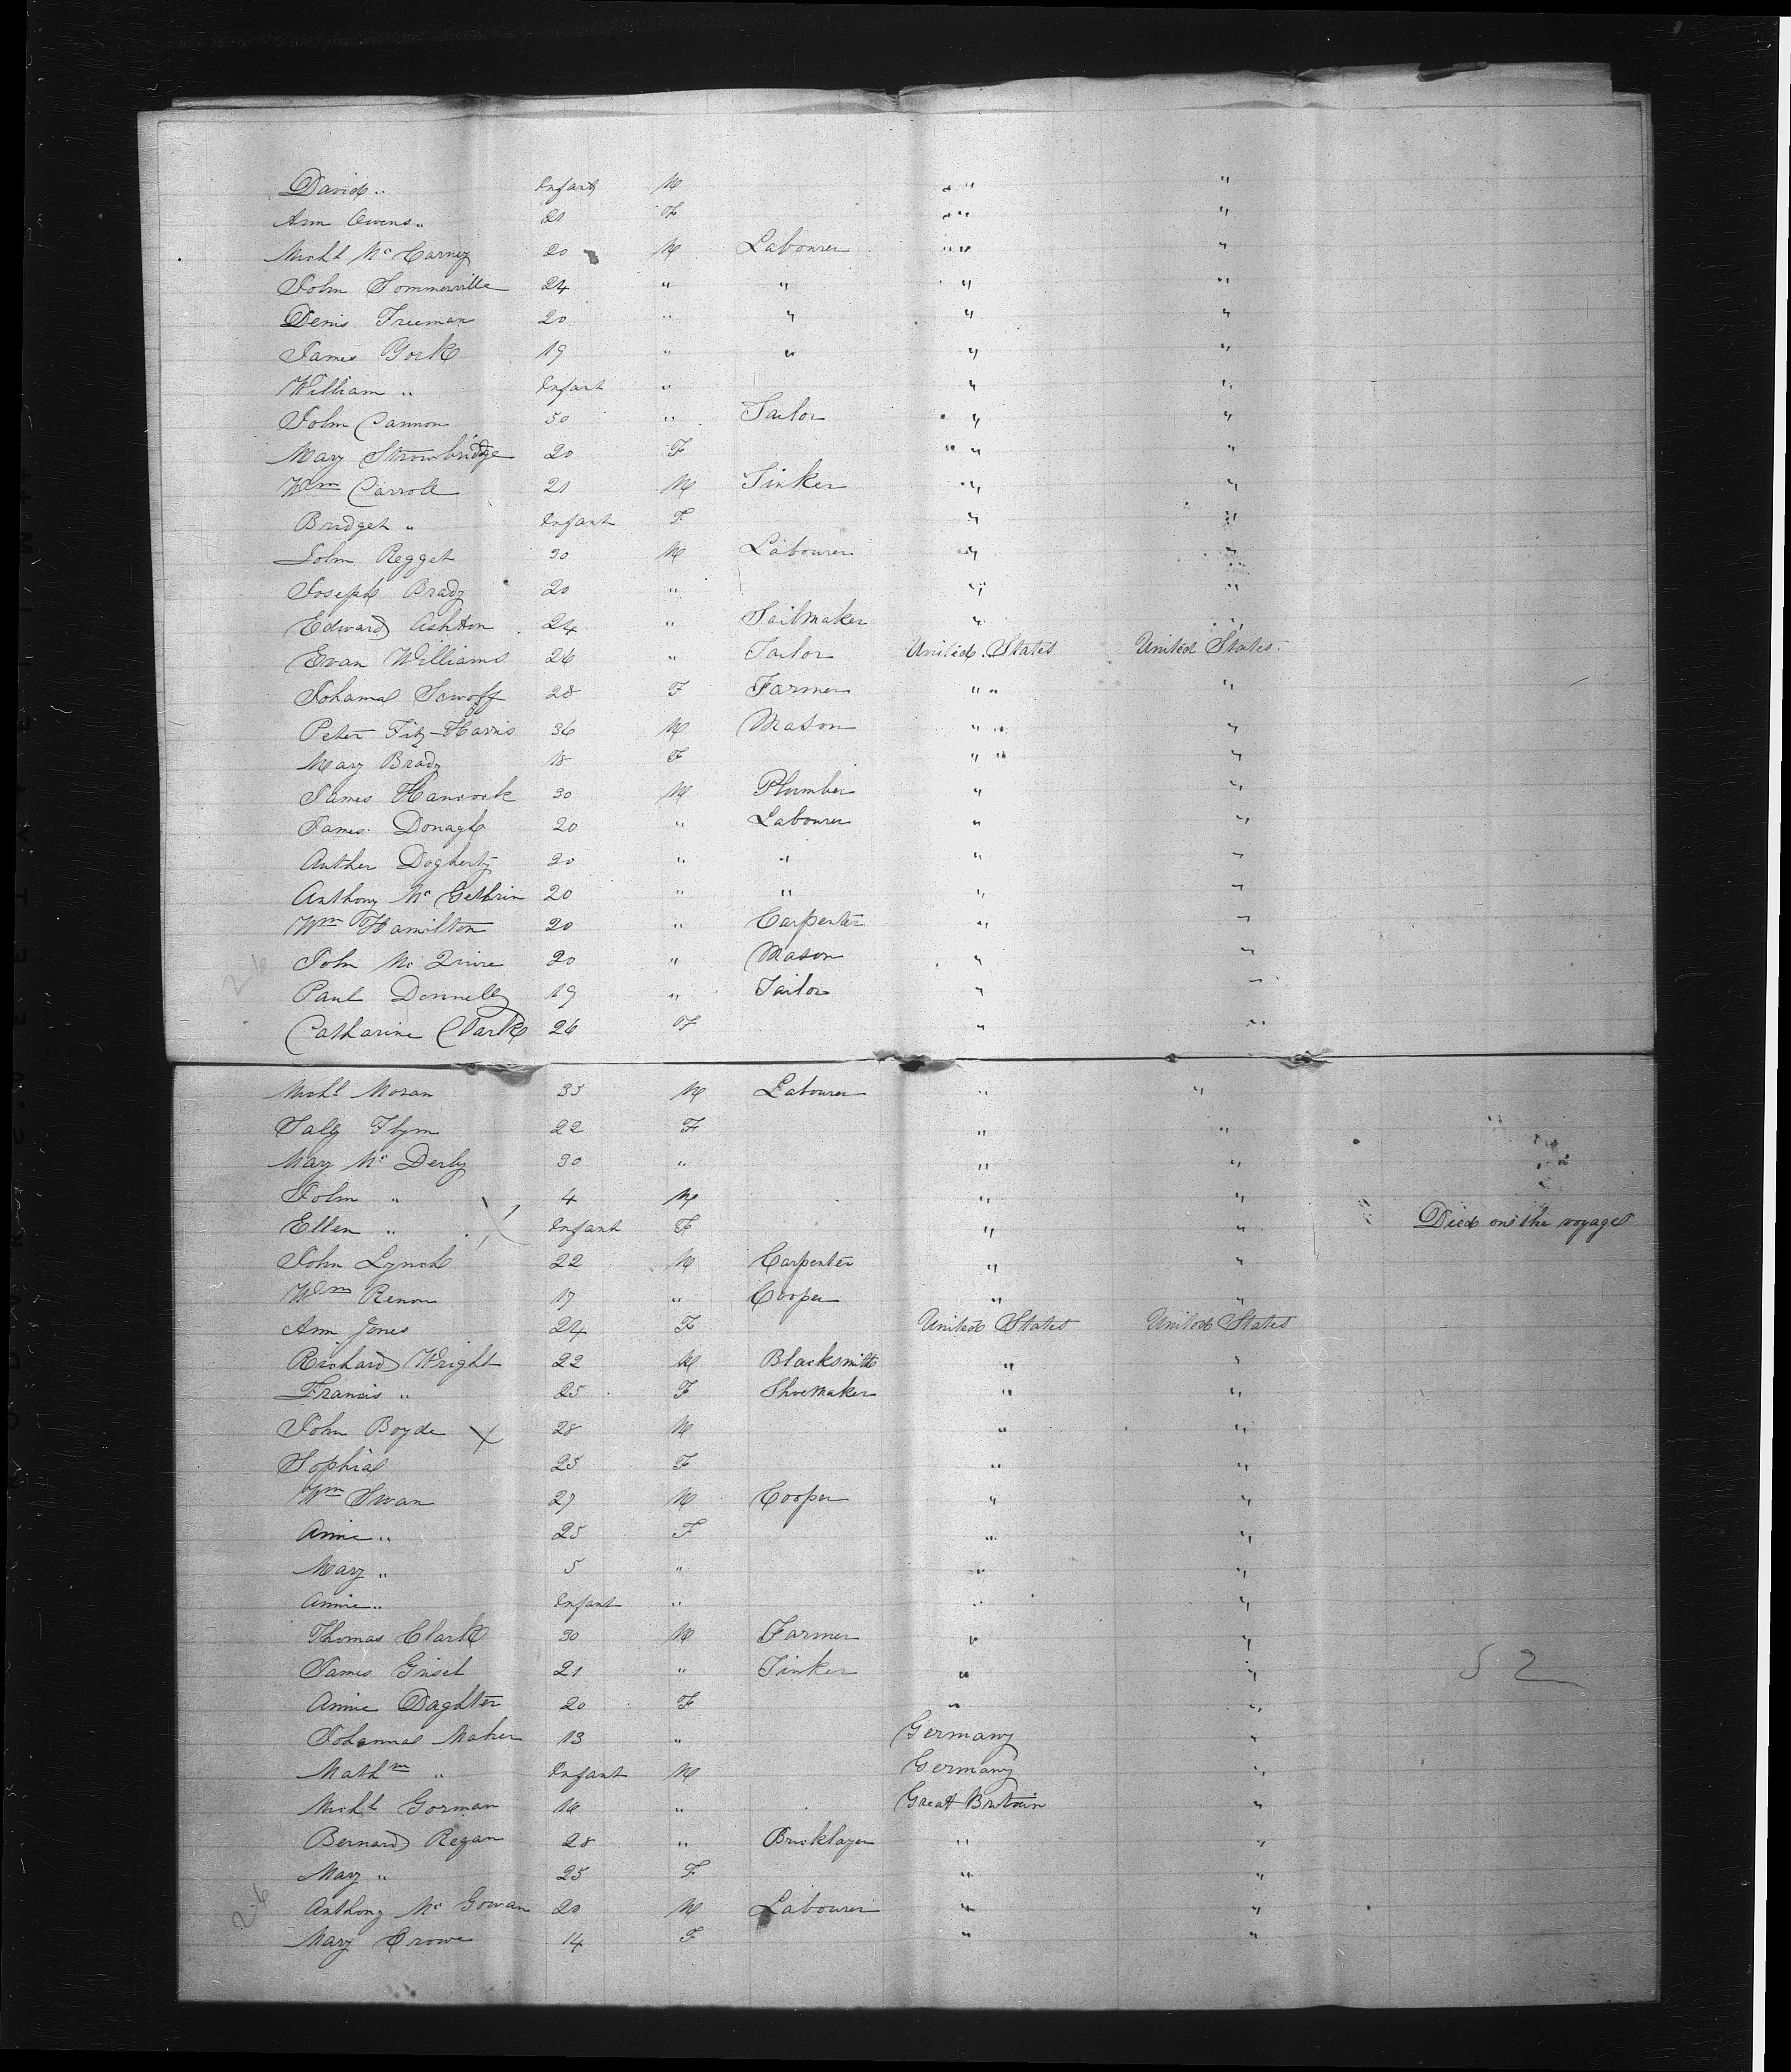 David " Infant M " " "
Ann Owens " 21 F " " "
Michl Mc Carney 20 M Labourer " " "
John Sommerville 24 " " " "
Denis Freeman 20 " " " "
James York 19 " " " "
William " Infant " " "
John Cannon 50 " Tailor " "
Mary Strowbridge 20 F " "
Wm Carroll 21 M Tinker " "
Bridget " Infant F " "
John Regget 30 M Labourer " "
Joseph Brady 20 " " "
Edward Ashton 24 " Sailmaker " "
Evan Williams 26 " Tailor United States United States
Johanna 28 F Farmer " " "
Peter Fitz-Harris 36 M Mason " " "
Mary Brady 18 F " " "
James Hancock 30 M Plumber " "
James Donagh 20 " Labourer " "
Auther Dogherty 20 " " " "
Anthony Mc Gethrin 20 " " " "
Wm Hamilton 20 " Carpenter " "
John Mc Quire 20 " Mason " "
Paul Donnelly 19 " Tailor " "
Catharine Clark 26 F " "
Michl Moran 35 M Labourer " "
Saly Flynn 22 F " "
Mary Mc Derby 30 " " "
John " 4 M " "
Ellen " Infant F " " Died on the voyage
John Lynch 22 M Carpenter " "
Wm Renon 17 " Cooper " "
Ann Jones 24 F United States United States
Richard Wright 22 M Blacksmith " "
Francis " 25 F Shoemaker " "
John Boyde X 28 M " "
Sophia 25 F " "
Wm Swan 27 M Cooper " "
Annie " 25 F " "
Mary " 5 " " "
Annie " Infant " " "
Thomas Clark 30 M Farmer " "
James Grisel 21 " Tinker " " 52
Annie Daghter 20 F " "
Johanna Maher 13 " Germany "
Mathw " Infant M Germany "
Michl Gorman 16 " Great Britain "
Bernard Regan 28 " Bricklayer " "
Mary " 25 F " "
26 Anthony Mc Gowan 20 M Labourer " "
Mary Crowe 14 F " "